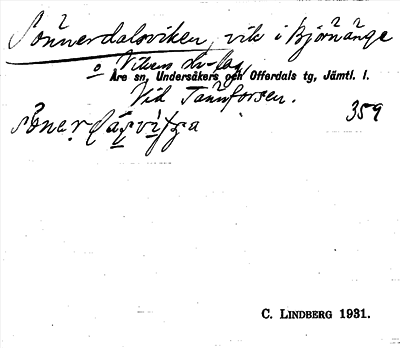 Sönnerdalsviken, vik i Björnänge
o Vikens
Åre sn, Undersåkers och Offerdals tg, Jämtl. l.
Vid Tännforsen.
359
C. LINDBERG 1931.